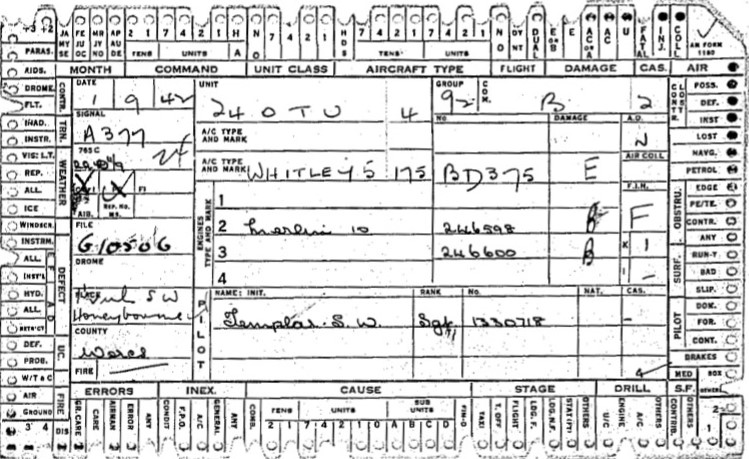 +3 +2 JA MY SE FE JU OC MR JY NO AP AU DE 2 1 7 4 2 1 H A NO 7 4 2 1 HDS 7 4 2 1 7 4 2 1 NO DY NT DUAL E OR B E AC OR A AC U FATAL INJ. COLL AIR FORM 1180
PARAS. TENS UNITS UNITS TENS UNITS
AIDS. MONTH COMMAND UNIT CLASS AIRCRAFT TYPE FLIGHT DAMAGE CAS. AIR
DROME. CONTR. DATE UNIT GROUP COM. CONTR. LOST POSS.
FLT. 1 9 42 24 OTU 4 92 B 2 DEF.
INAD. TRN. SIGNAL A/C TYPE AND MARK NO DAMAGE A.O. INST
INSTR. A377 N LOST
VIS: L.T. WEATHER 765 C 24 A/C TYPE AND MARK AIR COLL NAVG.
REP. WHITLEY 5 175 BD375 E PETROL
ALL F1 F.I.H. OBSTRU. EDGE
ICE AIR. REP. NO. MS. ENGINES TYPE AND MARK 1 F PE/TE.
WINDSCR. FILE 2 Merlin 10 246598 B CONTR.
INSTRM. G10506 3 246600 B K 1 ANY
ALL DEFECT DROME 4 I - SURF. RUN-T
INST'L BAD
HYD. PLACE PILOT NAME: INIT. RANK No. NAT. CAS. SLIP.
ALL S W Honeybourne Templar. S. W. Sgt 1330718 - PILOT DOW.
RSTRICT COUNTY FOR.
DEF. UC. Worcs CONT.
PROB. FIRE BRAKES
W/T & C MED BOX
AIR FIRE ERRORS INEX. CAUSE STAGE DRILL S.F. OTHER
GROUND GR. CARE CARE AIRMAN ERROR ANY CONDIT F.P.O. A/C GENERAL ANY COMB. TENS UNITS SUB UNITS FIN-O TAXI T. OFF FLIGHT LDG. F. LOG. N.F. STAT(PT) OTHERS U/C ENGINE A/C OTHERS CONTRIB. OTHERS
3 4 DIS 2 1 7 4 2 1 A B C D 2 1